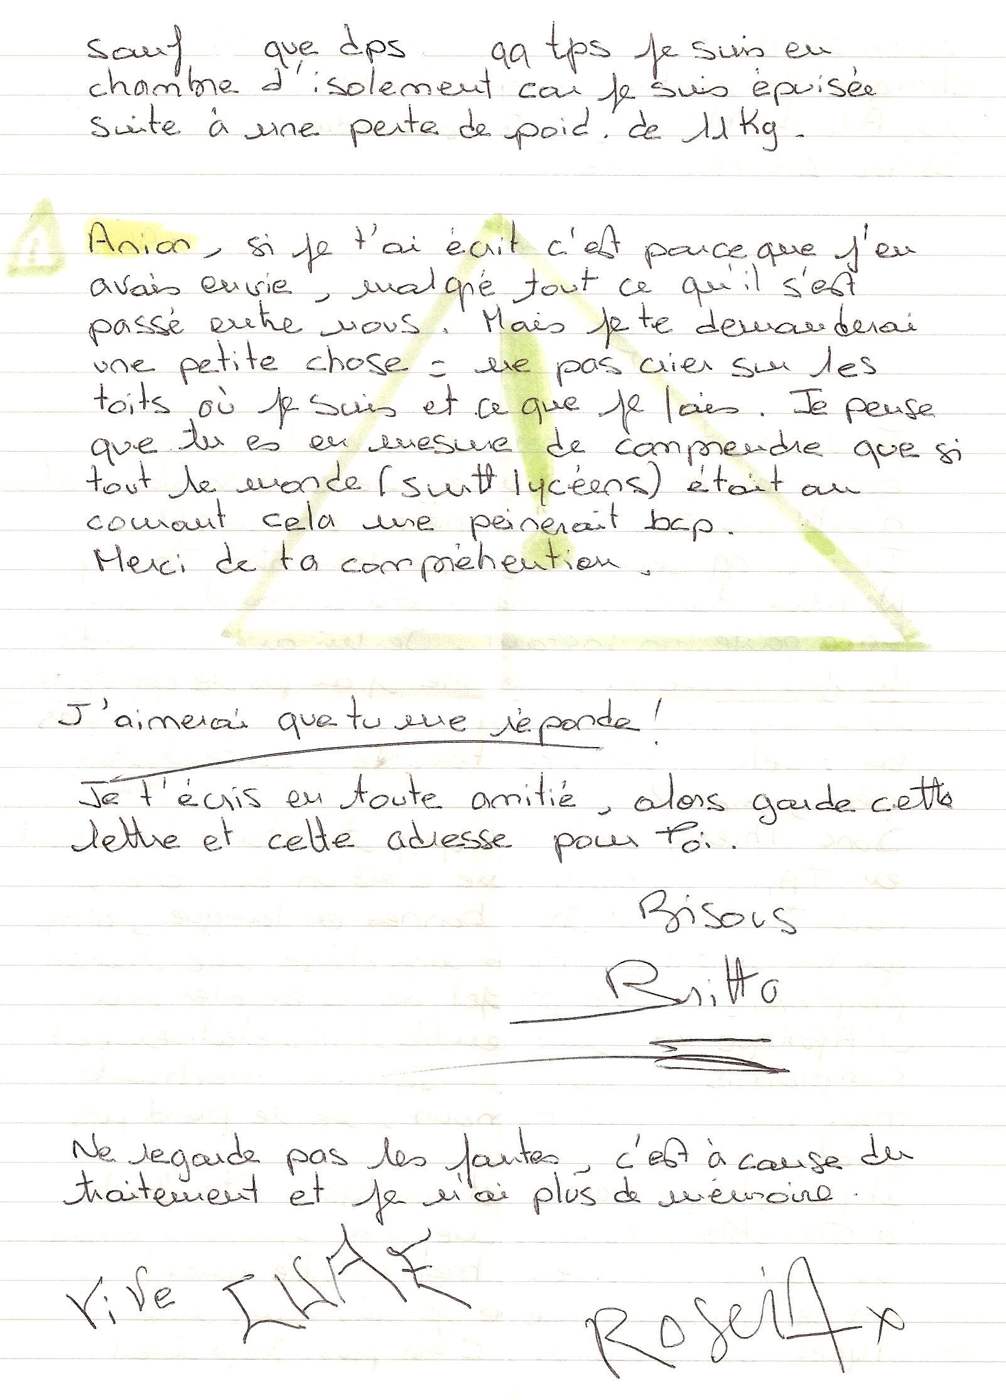 sauf que dps qq tps je suis en
chambre d'isolement car je suis épuisée
suite à une perte de poid. de 11Kg.
Anion, si je t'ai écrit c'est parce que j'en
avais envie, malgré tout ce qu'il s'est
passé entre nous. Mais je te demanderai
une petite chose = ne pas crier sur les
toits où je suis et ce que je fais. Je pense
que tu es en mesure de comprendre que si
tout le monde (surtt lycéens) était au
courant cela me peinerait bcp.
Merci de ta compréhention.
J'aimerai que tu me réponde!
Je t'écris en toute amitié, alors garde cette
lettre et cette adresse pour toi.
Bisous
Britta
Ne regarde pas les fautes, c'est à cause du
traitement et je n'ai plus de mémoire.
Vive